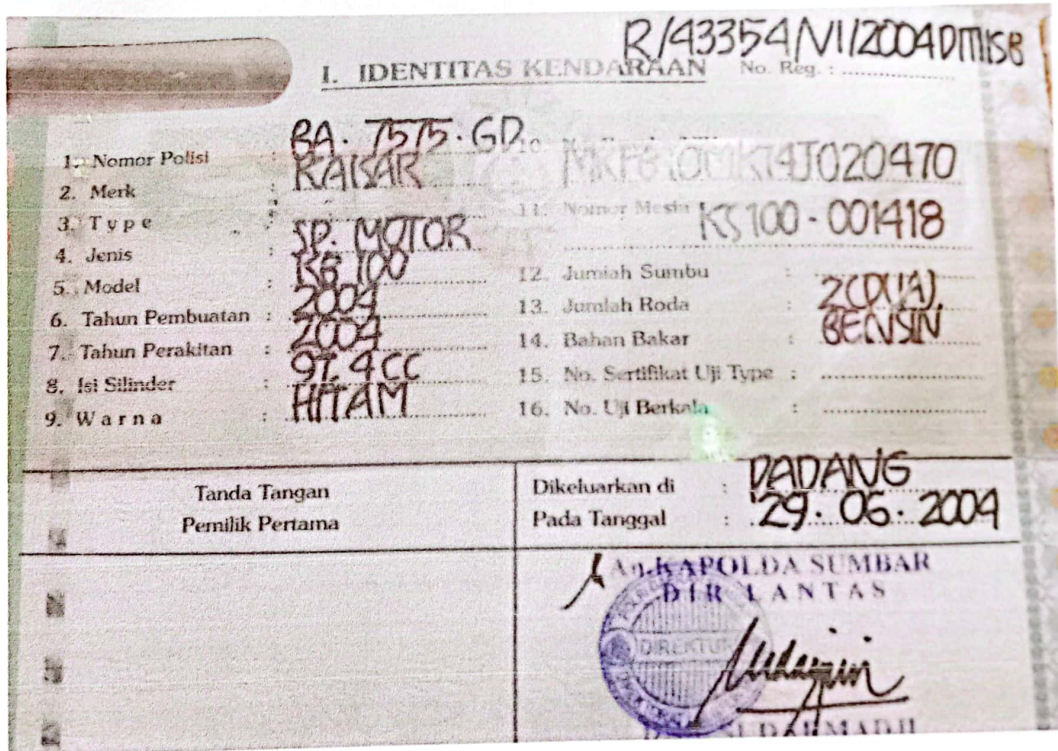 R/43354/VI/2004DITLSB
I. IDENTITAS KENDARAAN No. Reg. :
1. Nomor Polisi : BA. 7575. GD
2. Merk : KAISAR
3. Type
4. Jenis : SP. MOTOR
5. Model : KB 100
6. Tahun Pembuatan : 2004
7. Tahun Perakitan : 2004
8. Isi Silinder : 97.4 CC
9. Warna : HITAM
10.
020470
11. Nomor Mesin
KS 100 - 001418
12. Jumlah Sumbu :
13. Jumlah Roda : 2 (DUA).
14. Bahan Bakar : BENSIN
15. No. Sertifikat Uji Type :
16. No. Uji Berkala :
Tanda Tangan
Pemilik Pertama
Dikeluarkan di : PADANG
Pada Tanggal : 29. 06. 2004
An. KAPOLDA SUMBAR
DIR LANTAS
DIREKTUR
SUDARMADJI